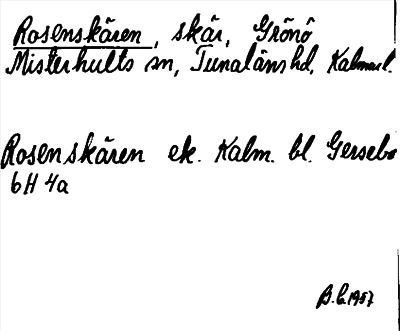 Rosenskären, skär, Grönö
Misterhults sn, Tunaläns hd, Kalmar l.
Rosenskären ek. Kalm. bl. Gersebo
6H 4a
B.C. 1957